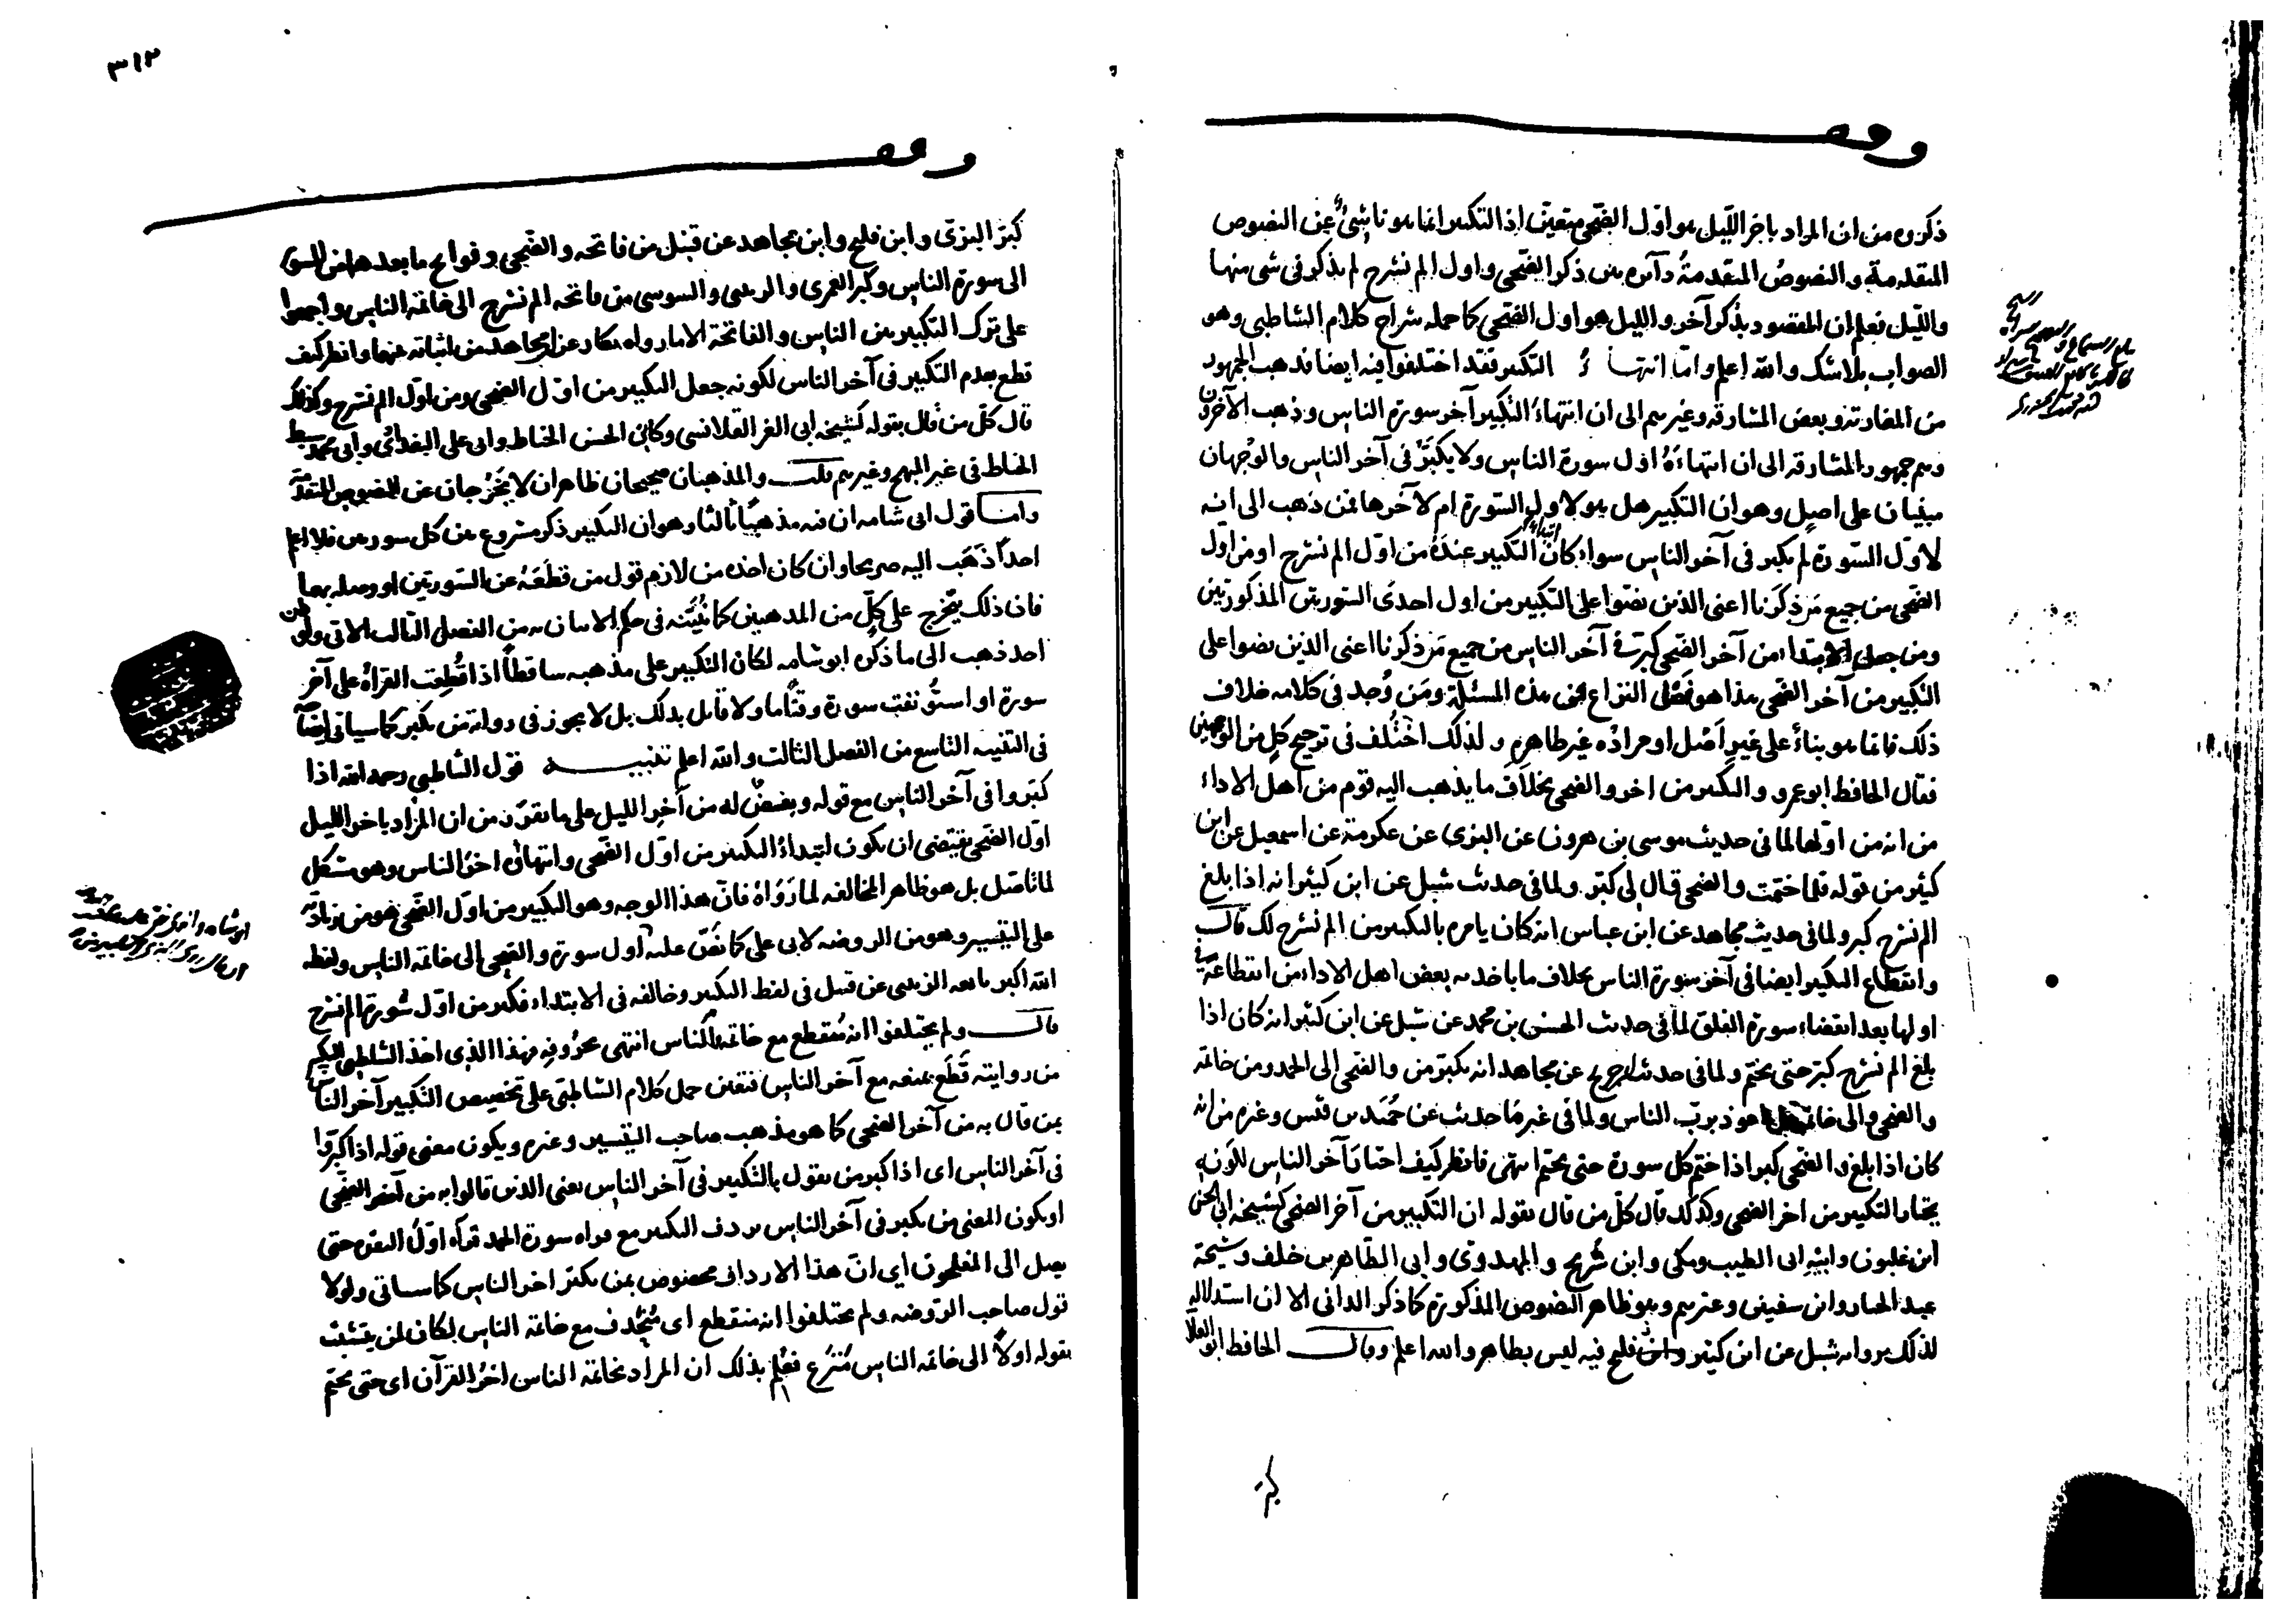 وقف
ذكروه من ان المراد باخر الليل هو اول الضحى متعين اذ التكبير انما هو ناشئ عن النصوص
المتقدمة والنصوص المتقدمة دائرة بين ذكر الضحى واول الم نشرح لم يذكر في شي منها
والليل فعلم ان المقصود بذكر آخر والليل هو اول الضحى كما حمله شراح كلام الشاطبي وهو
الصواب بلا شك والله اعلم واما انتهاء التكبير فقد اختلفوا فيه ايضا فذهب الجمهور
من المغاربة وبعض المشارقة وغيرهم الى ان انتهاء التكبير آخر سورة الناس وذهب الآخرون
وهم جمهور المشارقة الى ان انتهاءه اول سورة الناس ولا يكبر في آخر الناس والوجهان
مبنيان على اصل وهو ان التكبير هل هو لاول السورة ام لآخرها فمن ذهب الى انه
لاول السورة لم يكبر في آخر الناس سواء كان ابتداء التكبير عنده من اول الم نشرح او من اول
الضحى من جميع من ذكرنا اعني الذين نصوا على التكبير من اول احدى السورتين المذكورتين
ومن جعل الابتداء من آخر الضحى كبر في آخر الناس من جميع من ذكرنا اعني الذين نصوا على
التكبير من آخر الضحى هذا هو فصل النزاع في هذه المسئلة ومن وجد في كلامه خلاف
ذلك فانما هو بناء على غير اصل او مراده غير ظاهره ولذلك اختلف في ترجيح كل من الوجهين
فقال الحافظ ابو عمرو والتكبير من اخر والضحى بخلاف ما يذهب اليه قوم من اهل الاداء
من انه من اولها لما في حديث موسى بن هرون عن البزى عن عكرمة عن اسمعيل عن ابن
كثير من قوله فلما ختمت والضحى قال لي كبر ولما في حديث شبل عن ابن كثير انه اذا بلغ
الم نشرح كبر ولما في حديث مجاهد عن ابن عباس انه كان يامره بالتكبير من الم نشرح لك قال
وانقطاع التكبير ايضا في آخر سورة الناس بخلاف ما ياخذ به بعض اهل الاداء من انقطاعه في
اولها بعد انقضاء سورة الفلق لما في حديث الحسن بن محمد عن شبل عن ابن كثير انه كان اذا
بلغ الم نشرح كبر حتى يختم ولما في حديث ابن جريج عن مجاهد انه يكبر من والضحى الى الحمد ومن خاتمة
والضحى والى خاتمة قل اعوذ برب الناس ولما في غير ما حديث عن حميد بن قيس وغيره من انه
كان اذا بلغ والضحى كبر اذا ختم كل سورة حتى يختم انتهى فانظر كيف اختار آخر الناس لكونه
يختار التكبير من اخر الضحى وكذلك قال كل من قال بقوله ان التكبير من آخر الضحى كشيخه ابي الحسن
ابن غلبون وابيه ابي الطيب ومكي وابن شريح والمهدوي وابي الطاهر بن خلف وشيخه
عبد الجبار وابن سفين وغيرهم وهو ظاهر النصوص المذكورة كما ذكر الداني الا ان استدلاله
لذلك برواية شبل عن ابن كثير وابن فليح فيه ليس بظاهر والله اعلم وقال الحافظ ابو العلا
كبر
٣١٢
وقف
كبر البزى وابن فليح وابن مجاهد عن قنبل من فاتحه والضحى وفواتح ما بعدها من السور
الى سورة الناس وكبر العمرى والزينبى والسوسى من فاتحه الم نشرح الى خاتمة الناس واجمعوا
على ترك التكبير بين الناس والفاتحة الا ما رواه بكار عن ابن مجاهد من اثباته بينهما وانظر كيف
قطع بعدم التكبير في آخر الناس لكونه جعل التكبير من اول الضحى ومن اول الم نشرح وكذلك
قال كل من قال بقوله كشيخه ابي العز القلانسي وكابي الحسن الخياط وابي علي البغدادي وابي محمد سبط
الخياط في غير المبهج وغيرهم قلت والمذهبان صحيحان ظاهران لا يخرجان عن النصوص المتقدمة
واما قول ابي شامه ان فيه مذهبا ثالثا وهو ان التكبير ذكر مشروع بين كل سورتين فلا اعلم
احدا ذهب اليه صريحا وان كان اخذه من لازم قول من قطعه عن السورتين او وصله بهما
فان ذلك يتخرج على كل من المذهبين كما نبينه في حكم الاتيان به من الفصل الثالث الاتي ولو كان
احد ذهب الى ما ذكره ابو شامه لكان التكبير على مذهبه ساقطا اذا قطعت القراة على آخر
سورة او استؤنفت سورة وقتا ما ولا قائل بذلك بل لا يجوز في رواية من يكبر كما سياتي ايضا
في التنبيه التاسع من الفصل الثالث والله اعلم تنبيه قول الشاطبي رحمه الله اذا
كبروا في آخر الناس مع قوله وبعض له من آخر الليل على ما تقرر من ان المراد باخر الليل
اول الضحى يقتضى ان يكون ابتداء التكبير من اول الضحى وانتهاؤه اخر الناس وهو مشكل
لما تاصل بل هو ظاهر المخالفه لما رواه فان هذا الوجه وهو التكبير من اول الضحى هو من زياداته
على التيسير وهو من الروضه لابي علي كما نص عليه اول سورة والضحى الى خاتمة الناس ولفظه
الله اكبر تابعه الزينبي عن قنبل في لفظ التكبير وخالفه في الابتداء فكبر من اول سورة الم نشرح
قال ولم يختلفوا انه منقطع مع خاتمة الناس انتهى بحروفه فهذا الذي اخذ الشاطبي التكبير
من روايته قطع بمنعه مع آخر الناس فتعين حمل كلام الشاطبي على تخصيص التكبير آخر الناس
بمن قال به من آخر الضحى كما هو مذهب صاحب التيسير وغيره ويكون معنى قوله اذا كبروا
في آخر الناس اى اذا كبر من يقول بالتكبير في آخر الناس يعني الذين قالوا به من آخر الضحى
او يكون المعنى من يكبر في آخر الناس يردف التكبير مع قراه سورة الحمد قراة اول البقره حتى
يصل الى المفلحون اى ان هذا الارداف مخصوص بمن يكبر اخر الناس كما سياتى ولولا
قول صاحب الروضه ولم يختلفوا انه منقطع اى منحذف مع خاتمة الناس لكان لمن يتشبث
بقوله اولا الى خاتمة الناس منزع فعلم بذلك ان المراد بخاتمة الناس اخر القرآن اى حتى يختم